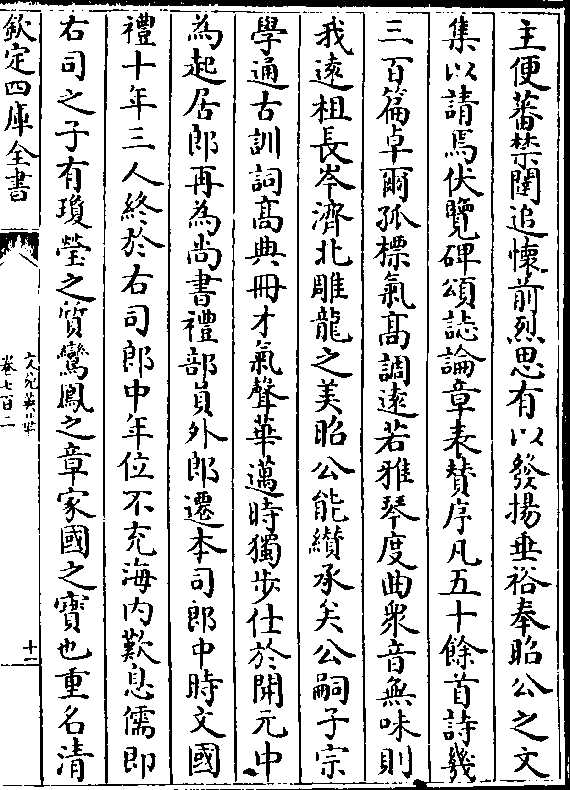 主便蕃禁闈追懷前烈思有以發揚垂裕奉昭公之文
集以請焉伏覽碑頌誌論章表贊序凡五十餘首詩幾
三百篇卓爾孤標氣高調逺若雅琴度曲衆音無味則
我逺祖長岑濟北雕龍之美昭公能纉承矣公嗣子宗
學通古訓詞髙典冊才氣聲華邁時獨步仕於開元中
為起居郎再為尚書禮部員外郎遷本司郎中時文國
禮十年三人終於右司郎中年位不充海内歎息儒即
右司之子有瓊瑩之質鸞鳳之章家國之寶也重名清
欽定四庫全書
文苑英華
卷七百二
十二